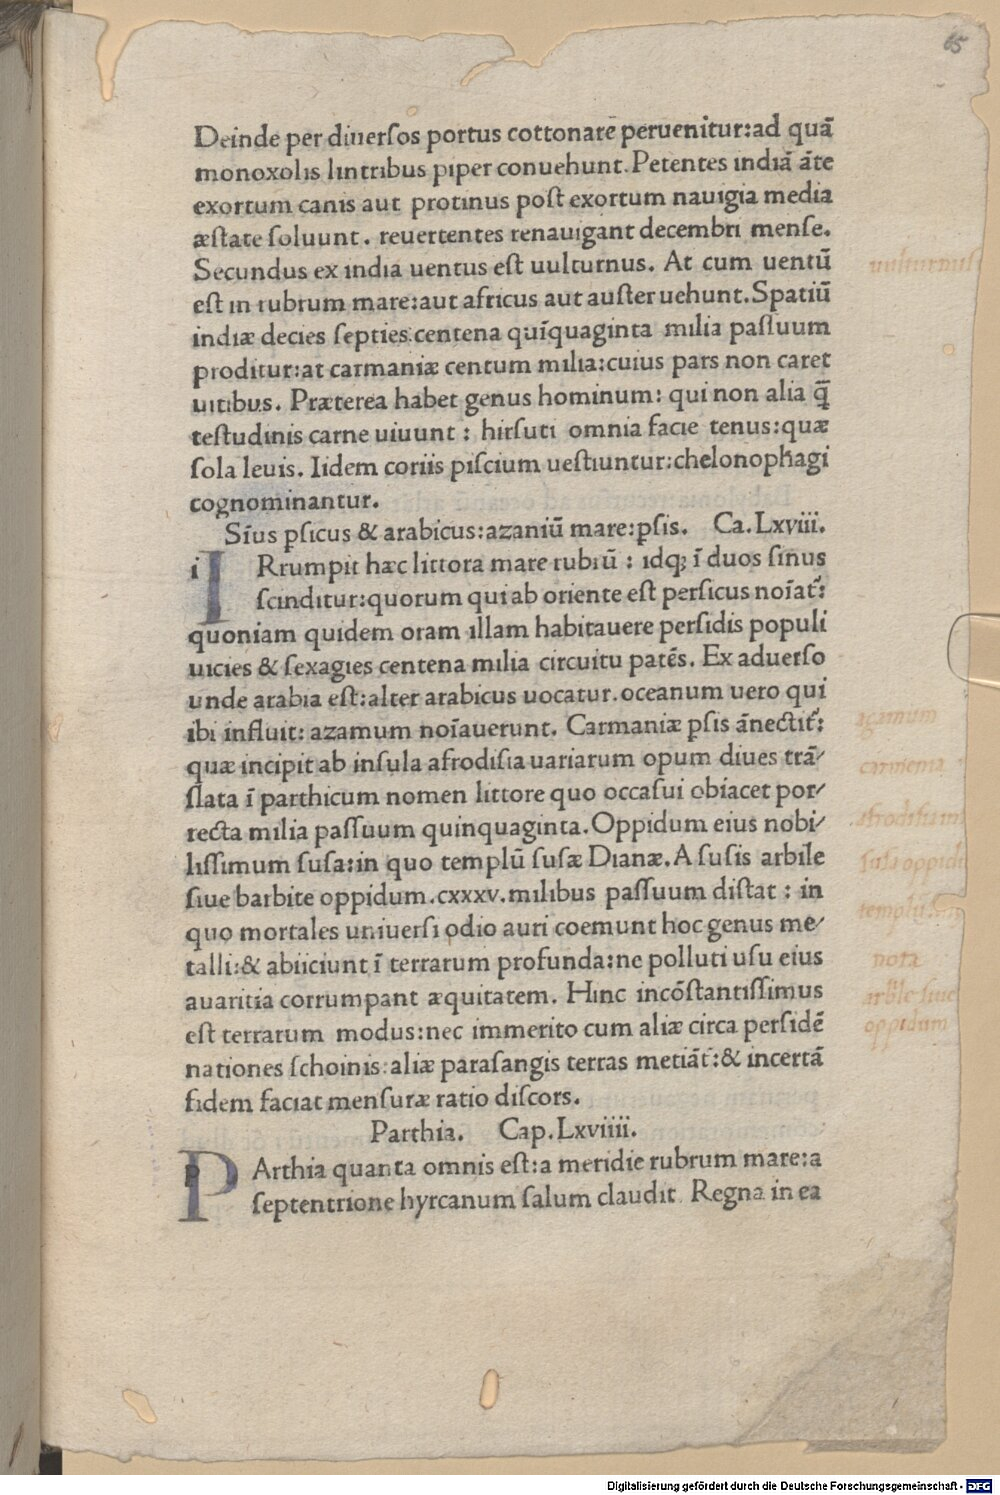 65
Deinde per diuerſos portus cottonarē peruenitur:ad quā
monoxolis lintribus piper conuehunt.Petentes indiā āte
exortum canis aut protinus poſt exortum nauigia media
æſtate ſoluunt. reuertentes renauigant decembri menſe.
Secundus ex india uentus eſt uulturnus. At cum uentū
eſt in rubrum mare:aut africus aut auſter uehunt.Spatiū
indiæ decies ſepties.centena quīquaginta milia paſſuum
proditur:at carmaniæ centum milia:cuius pars non caret
uitibus. Præterea habet genus hominum: qui non alia q̄̄
teſtudinis carne uiuunt : hirſuti omnia facie tenus:quæ
ſola leuis. Iidem coriis piſcium ueſtiuntur:chelonophagi
cognominantur.
Sīus pſicus & arabicus:azaniū mare:pſis. Ca.Lxviii.
i I Rrumpit hæc littora mare rubrū : idq; ī duos ſinus
ſcinditur:quorum qui ab oriente eſt perſicus noīat᷑:
quoniam quidem oram illam habitauere perſidis populi
uicies & ſexagies centena milia circuitu patēs. Ex aduerſo
unde arabia eſt:alter arabicus uocatur.oceanum uero qui
ibi influit: azamum noīauerunt. Carmaniæ pſis ānectit᷑:
quæ incipit ab inſula afrodiſia uariarum opum diues trā/
ſlata ī parthicum nomen littore quo occaſui obiacet por/
recta milia paſſuum quinquaginta.Oppidum eius nobi/
liſſimum ſuſa:in quo templū ſuſæ Dianæ.A ſuſis arbile
ſiue barbite oppidum.cxxxv.milibus paſſuum diſtat : in
quo mortales uniuerſi odio auri coemunt hoc genus me/
talli:& abiiciunt ī terrarum profunda:ne polluti uſu eius
auaritia corrumpant æquitatem. Hinc incōſtantiſſimus
eſt terrarum modus:nec immerito cum aliæ circa perſidē
nationes ſchoinis:aliæ paraſangis terras metiāt᷑:& incertā
fidem faciat menſuræ ratio diſcors.
Parthia. Cap.Lxviiii.
P Arthia quanta omnis eſt:a meridie rubrum mare:a
ſeptentrione hyrcanum ſalum claudit. Regna in ea
uulturnus
azamum
carmenia
afrodiſia in
ſuſa oppidū
templū
nota
arbile ſiue
oppidum
Digitalisierung gefördert durch die Deutsche Forschungsgemeinschaft - DFG